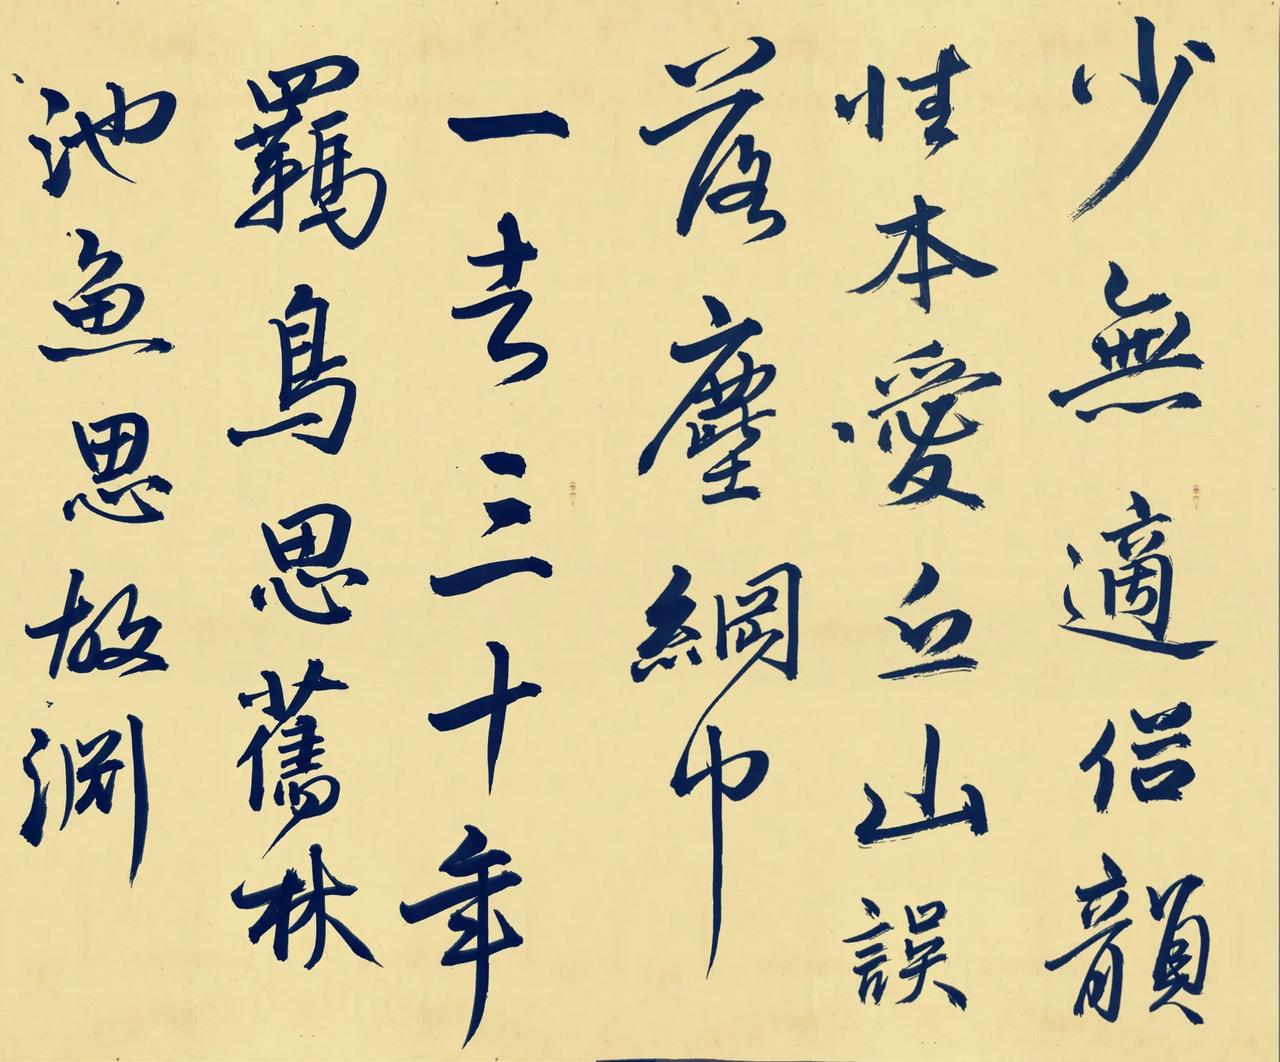 少無適俗韻
性本愛丘山誤
落塵網中
一去三十年
羈鳥思舊林
池魚思故淵